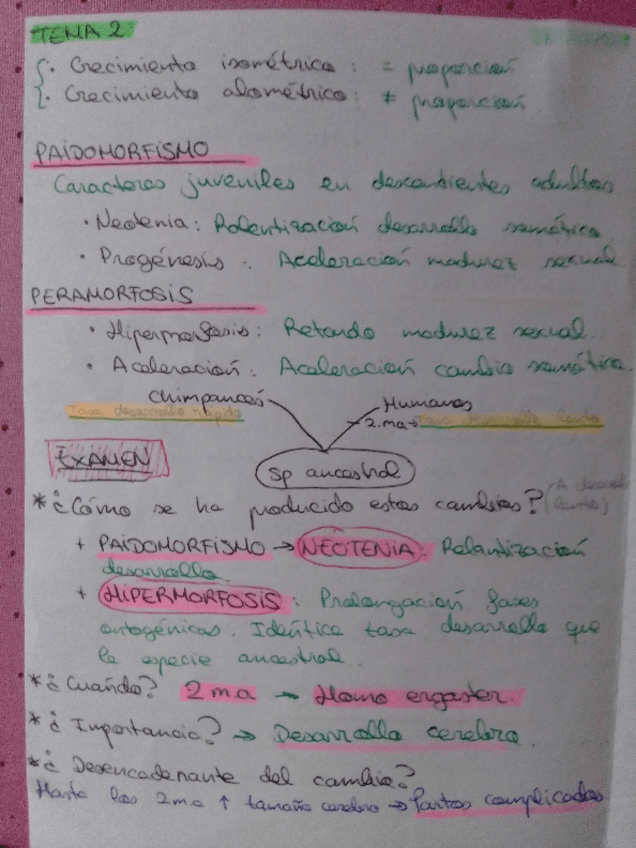 TEMA 2
· Crecimiento isométrico: = proporción
· Crecimiento alométrico: ≠ proporción
PAIDOMORFISMO
Caracteres juveniles en descendientes adultos
· Neotenia: Ralentización desarrollo somático
· Progénesis: Aceleración madurez sexual
PERAMORFOSIS
· Hipermorfosis: Retardo madurez sexual.
· Aceleración: Aceleración cambio somático.
Chimpancés
Tasa desarrollo rápido
Humanos
2.ma→ Tasa desarrollo lento
Sp ancestral
EXAMEN
* ¿Cómo se ha producido estos cambios? (A desarrollo lento)
+ PAIDOMORFISMO → NEOTENIA: Ralentización
desarrollo
+ HIPERMORFOSIS: Prolongación fases
ontogénicas. Idéntica tasa desarrollo que
la especie ancestral.
* ¿Cuándo? 2 m.a → Homo ergaster.
* ¿Importancia? → Desarrollo cerebro.
* ¿Desencadenante del cambio?
Hasta los 2ma ↑ tamaño cerebro → Partos complicados